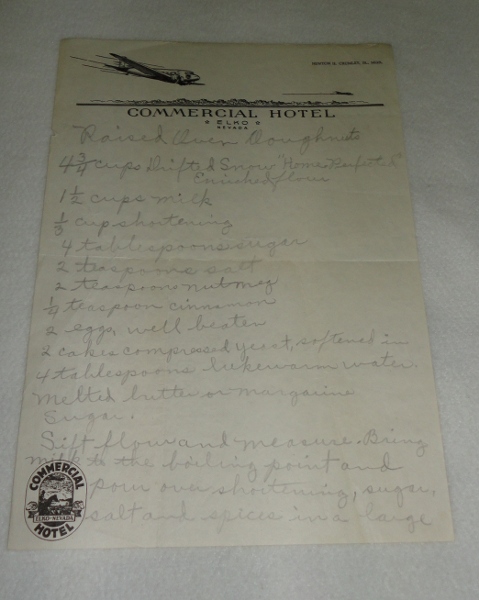 COMMERCIAL HOTEL
★ ELKO ★
NEVADA
Raised Oven Doughnuts
4 3/4 cups Drifted Snow "Home Perfected"
Enriched flour
1 1/2 cups milk
1/3 cup shortening
4 tablespoons sugar
2 teaspoons salt
2 teaspoons nutmeg
1/4 teaspoon cinnamon
2 eggs, well beaten
2 cakes compressed yeast, softened in
4 tablespoons lukewarm water.
Melted butter or margarine
Sugar.
Sift flour and measure. Bring
milk to the boiling point and
pour over shortening, sugar,
salt and spices in a large
COMMERCIAL
ELKO-NEVADA
HOTEL